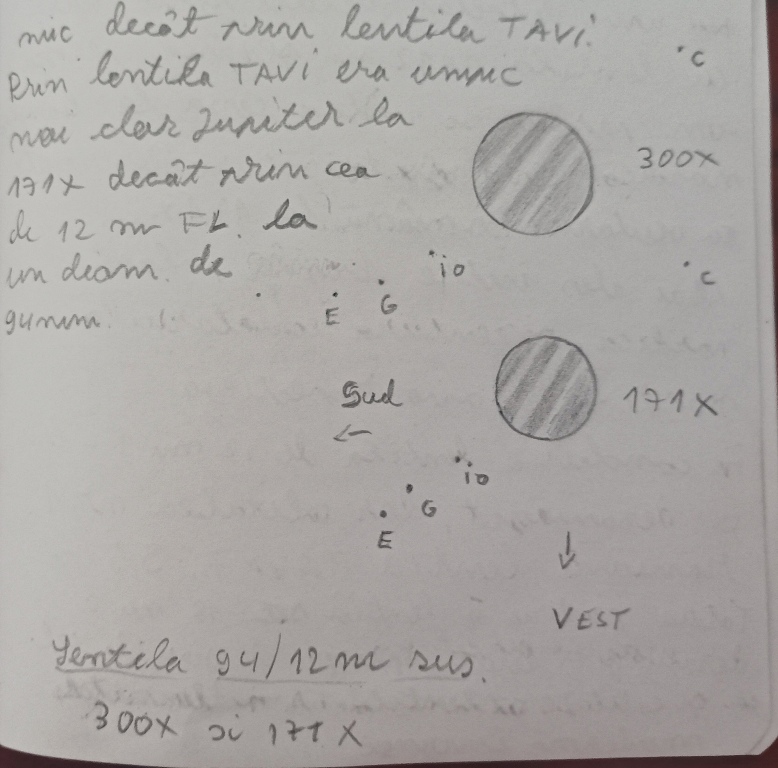 mic decât prin lentila TAVI.
Prin lentila TAVI era un pic
mai clar Jupiter la
171X decât prin cea
de 12 m FL. la
un diam. de
94mm.
C
300X
io
E G
C
171X
Sud
←
io
G
E
↓
VEST
Lentila 94/12m sus.
300X si 171X